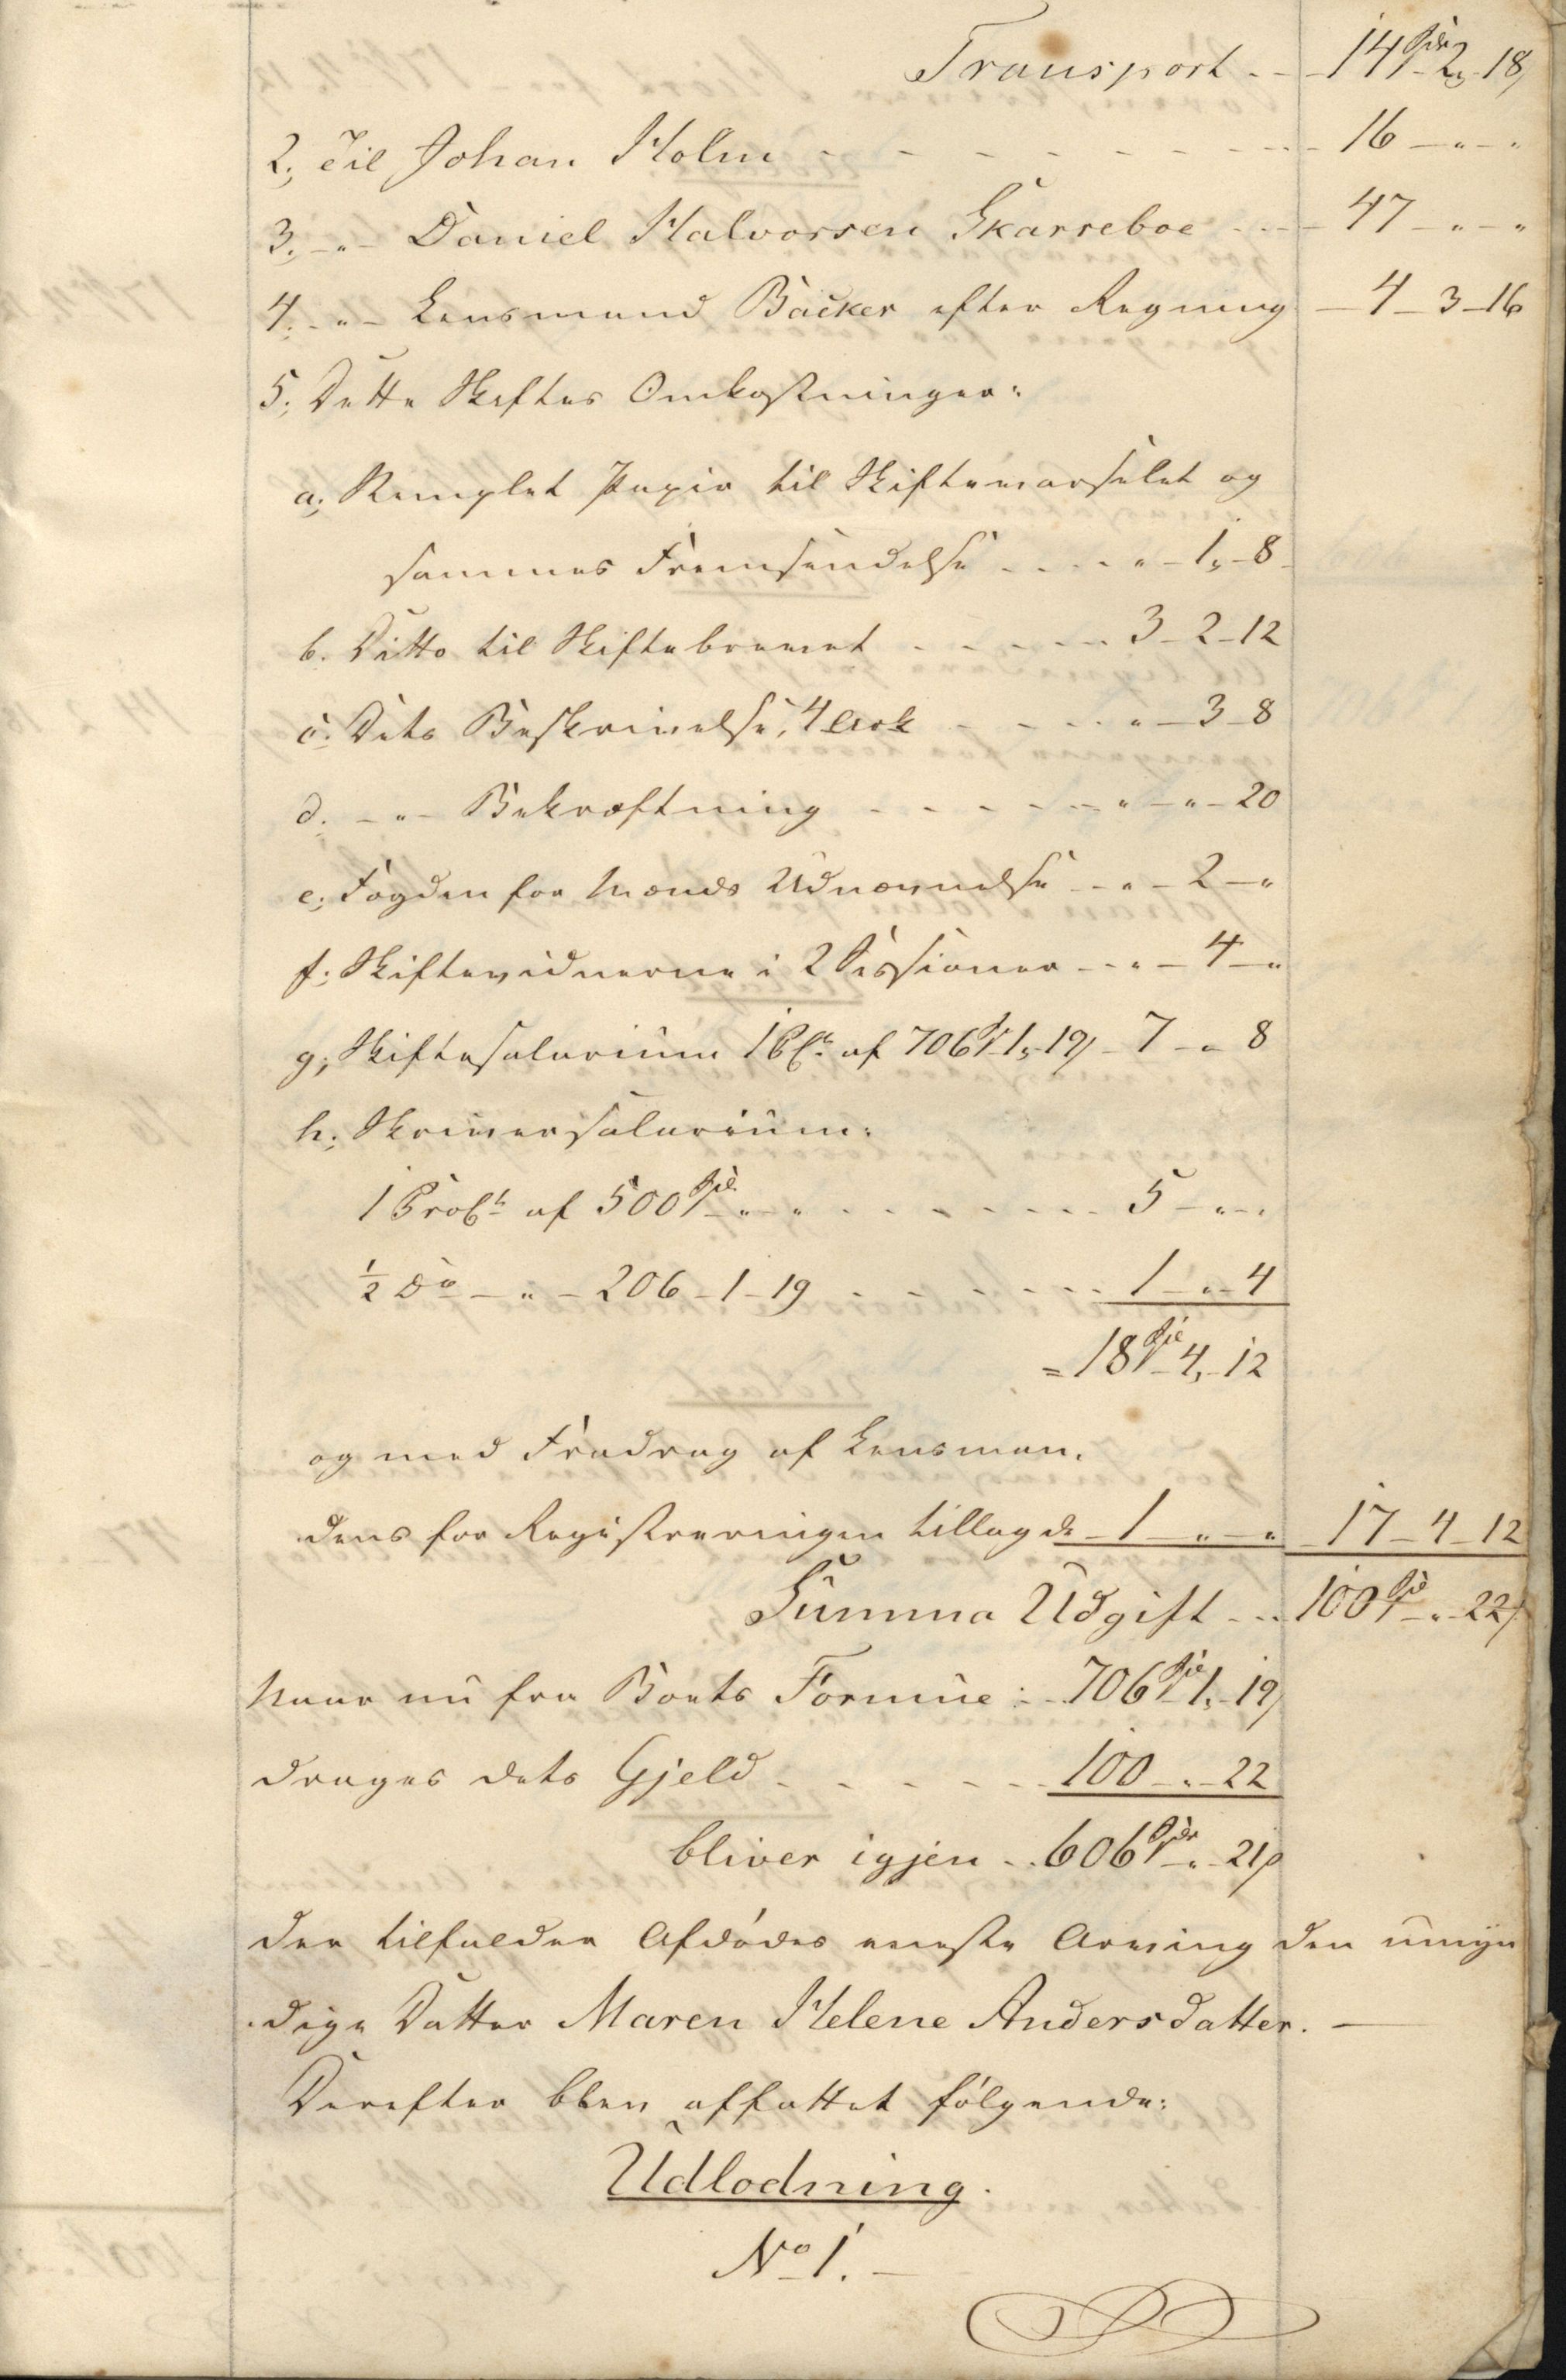 Transport - - 14 Spd 2, 18,
2, Til Johan Holm - - - - - - - - 16 - " - "
3, - " - Daniel Halvorsen Skarreboe - - - 47 - " - "
4, - " - Lensmand Backer efter Regning - 4 - 3 - 16
5, Dette Skiftes Omkostninger:
a, Stemplet Papir til Skiftenarselet og
sammes Fremsendelse - - - - " - 1, - 8
b. Ditto til Skiftebrevet - - - - - 3 - 2 - 12
c. Dets Beskrivelse, 4 Ark - - - - " - 3 - 8
d. - " - Bekræftning - - - - - " - " - 20
e, Fogden for Mænds Udnævnelse - - " - 2 - "
f, Skiftevidnerne i 2 Sessioner - - " - 4 - "
g, Skiftesalarium 1 PCt. af 706 Spd 1, - 19, - 7 - " 8
h, Skriversalarium:
1 ProCt. af 500 Spd - " - " - - - - - - 5 - " - "
½ Do - " - 206 - 1 - 19 - - - - - - 1 - " - 4
= 18 Spd 4, - 12
og med Fradrag af Lensman-
dens for Registreringen tillagde - 1 - " - " - 17 - 4 - 12
Summa Udgift - - 100 Spd - " - 22,
Naar nu fra Boets Formue : - 706 Spd 1, - 19,
drages dets Gjeld - - - - - - 100 - " - 22
bliver igjen - - 606 Spd - " - 21,
der tilfalder Afdødes eneste Arving den umyn
dige Datter Maren Helene Andersdatter. -
Derefter blev affattet følgende:
Udlodning.
No 1. -